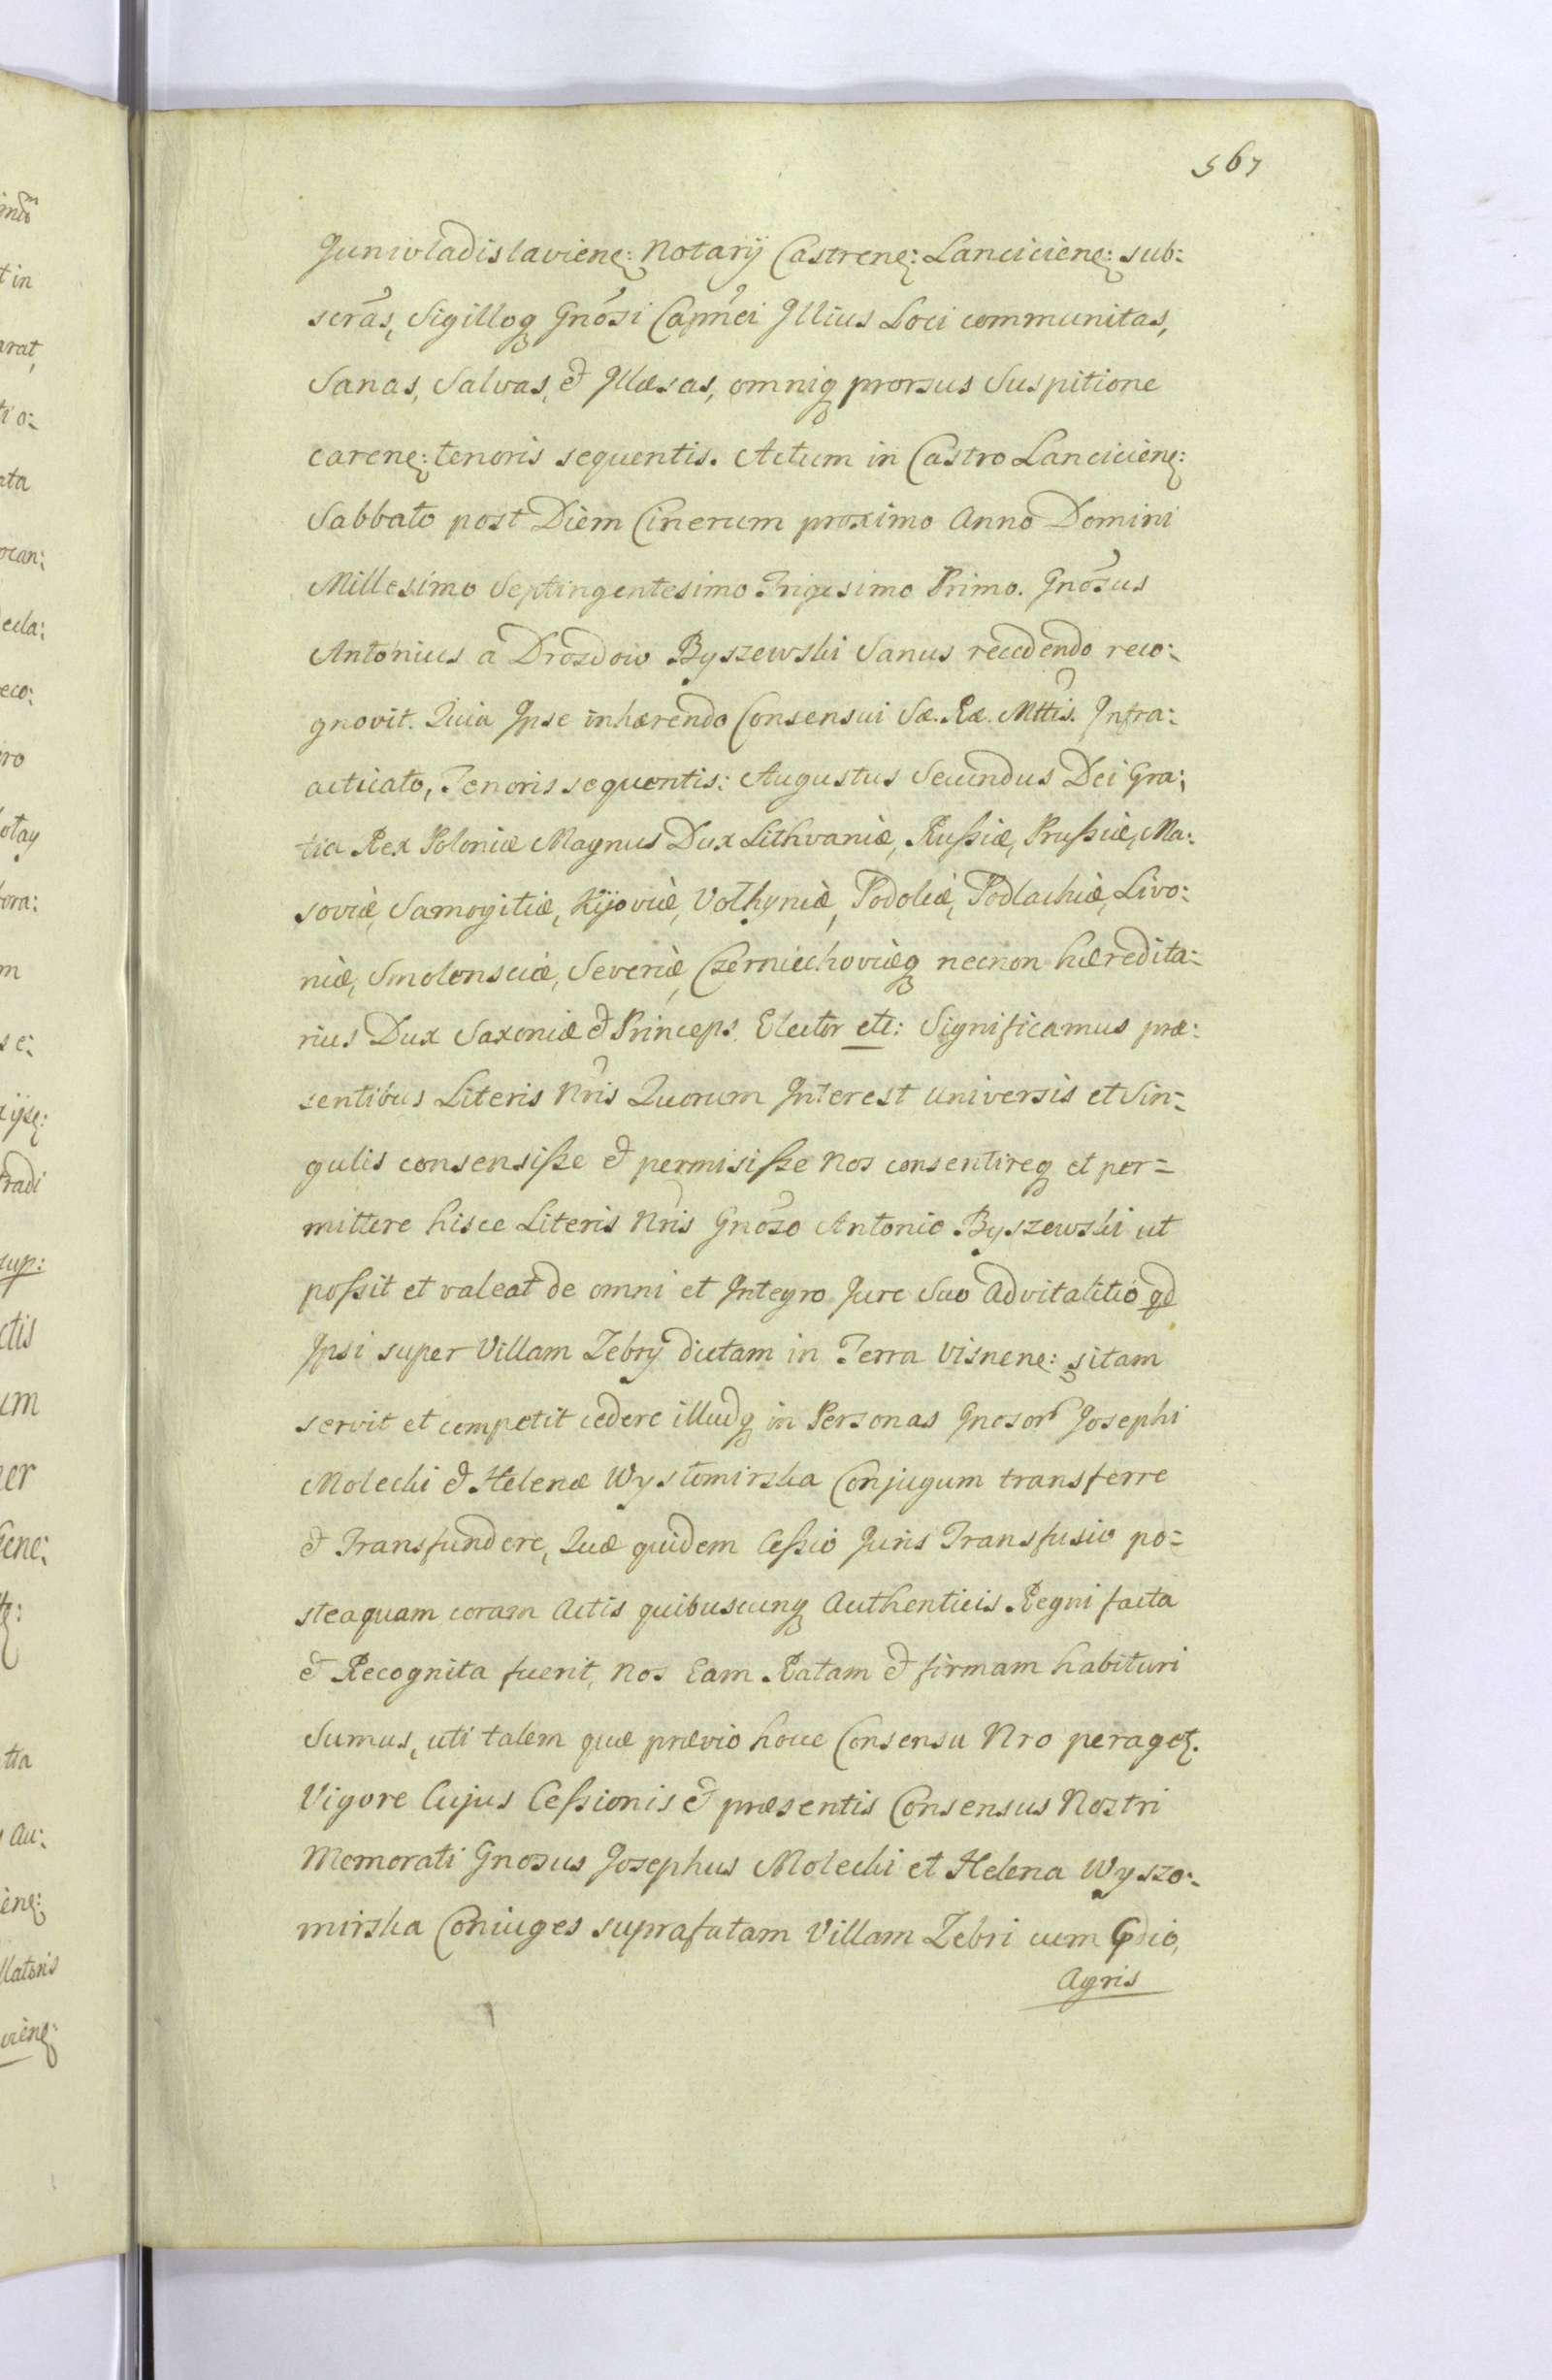 567
Junivladislaviene: Notarÿ Castrene: Lancicienę: sub:
scras, Sigilloq Gnosi Capnei Jllius Loci communitas,
Sanas, Salvas, et Jllæsas, omniq prorsus Suspitione
carenę: tenoris sequentis. Actum in Castro Lancicienę:
Sabbato post Diem Cinerum proximo Anno Domini
Millesimo Septingentesimo Trigesimo Primo. Gnosus
Antonius a Drozdow Byszewski Sanus recedendo reco:
gnovit. Quia Jpse inhærendo Consensui Sæ. Ræ. Mttis. Jnfra:
acticato, Tenoris sequentis: Augustus Secundus Dei Gra:
tia Rex Poloniæ Magnus Dux Lithvaniæ, Rußiæ, Prußiæ, Ma:
soviæ, Samogitiæ, Kÿoviæ, Volhyniæ, Podoliæ, Podlachiæ, Livo:
niæ, Smolensciæ, Severiæ, Czerniechoviæq necnon hæredita:
rius Dux Saxoniæ et Princeps Elector etc: Significamus præ:
sentibus Literis Nris Quorum Jnterest universis et Sin:
gulis consensiße et permisiße Nos consentireq et per=
mittere hisce Literis Nris Gnoso Antonio Byszewski ut
poßit et valeat de omni et Jntegro Jure Suo Advitalitio qd
Jpsi super Villam Zebrÿ dictam in Terra Visnenę: sitam
servit et competit cedere illudq in Personas Gnosor Josephi
Molecki et Helenæ Wyszomirska Conjugum transferre
et Transfundere, Quæ quidem Ceßio Juris Transfusio po=
steaquam coram Actis quibuscunq Authenticis Regni facta
et Recognita fuerit, Nos Eam Ratam et firmam habituri
Sumus, uti talem quæ prævio hocce Consensu Nro peraget.
Vigore Cujus Ceßionis et præsentis Consensus Nostri
Memorati Gnosus Josephus Molecki et Helena Wyszo:
mirska Coniuges suprafatam Villam Zebri cum
Agris